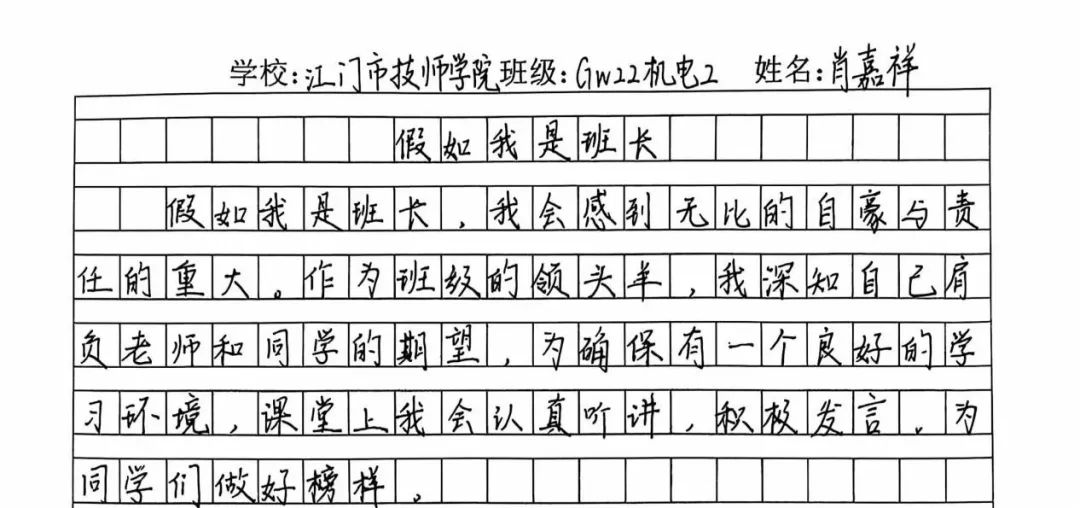 学校:江门市技师学院班级:GW22机电2 姓名:肖嘉祥
假如我是班长
假如我是班长,我会感到无比的自豪与责
任的重大。作为班级的领头羊,我深知自己肩
负老师和同学的期望,为确保有一个良好的学
习环境,课堂上我会认真听讲,积极发言。为
同学们做好榜样。